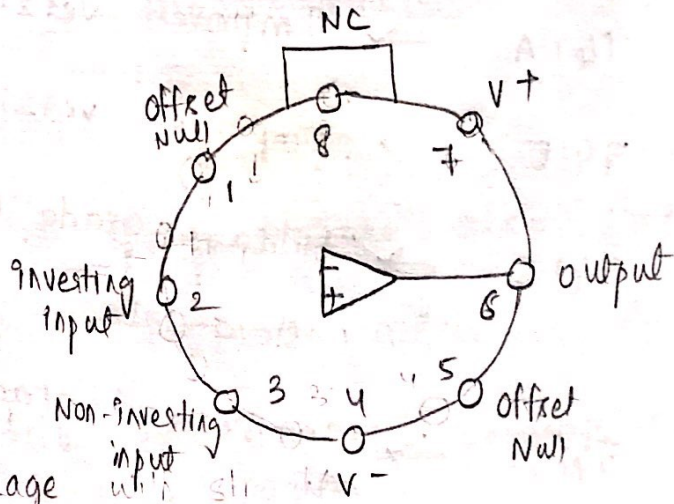 NC
Offset
Null
V+
8
7
1
Inverting
input
2
-
+
6
output
3
4
5
Non-inverting
input
Offset
Null
V-
age